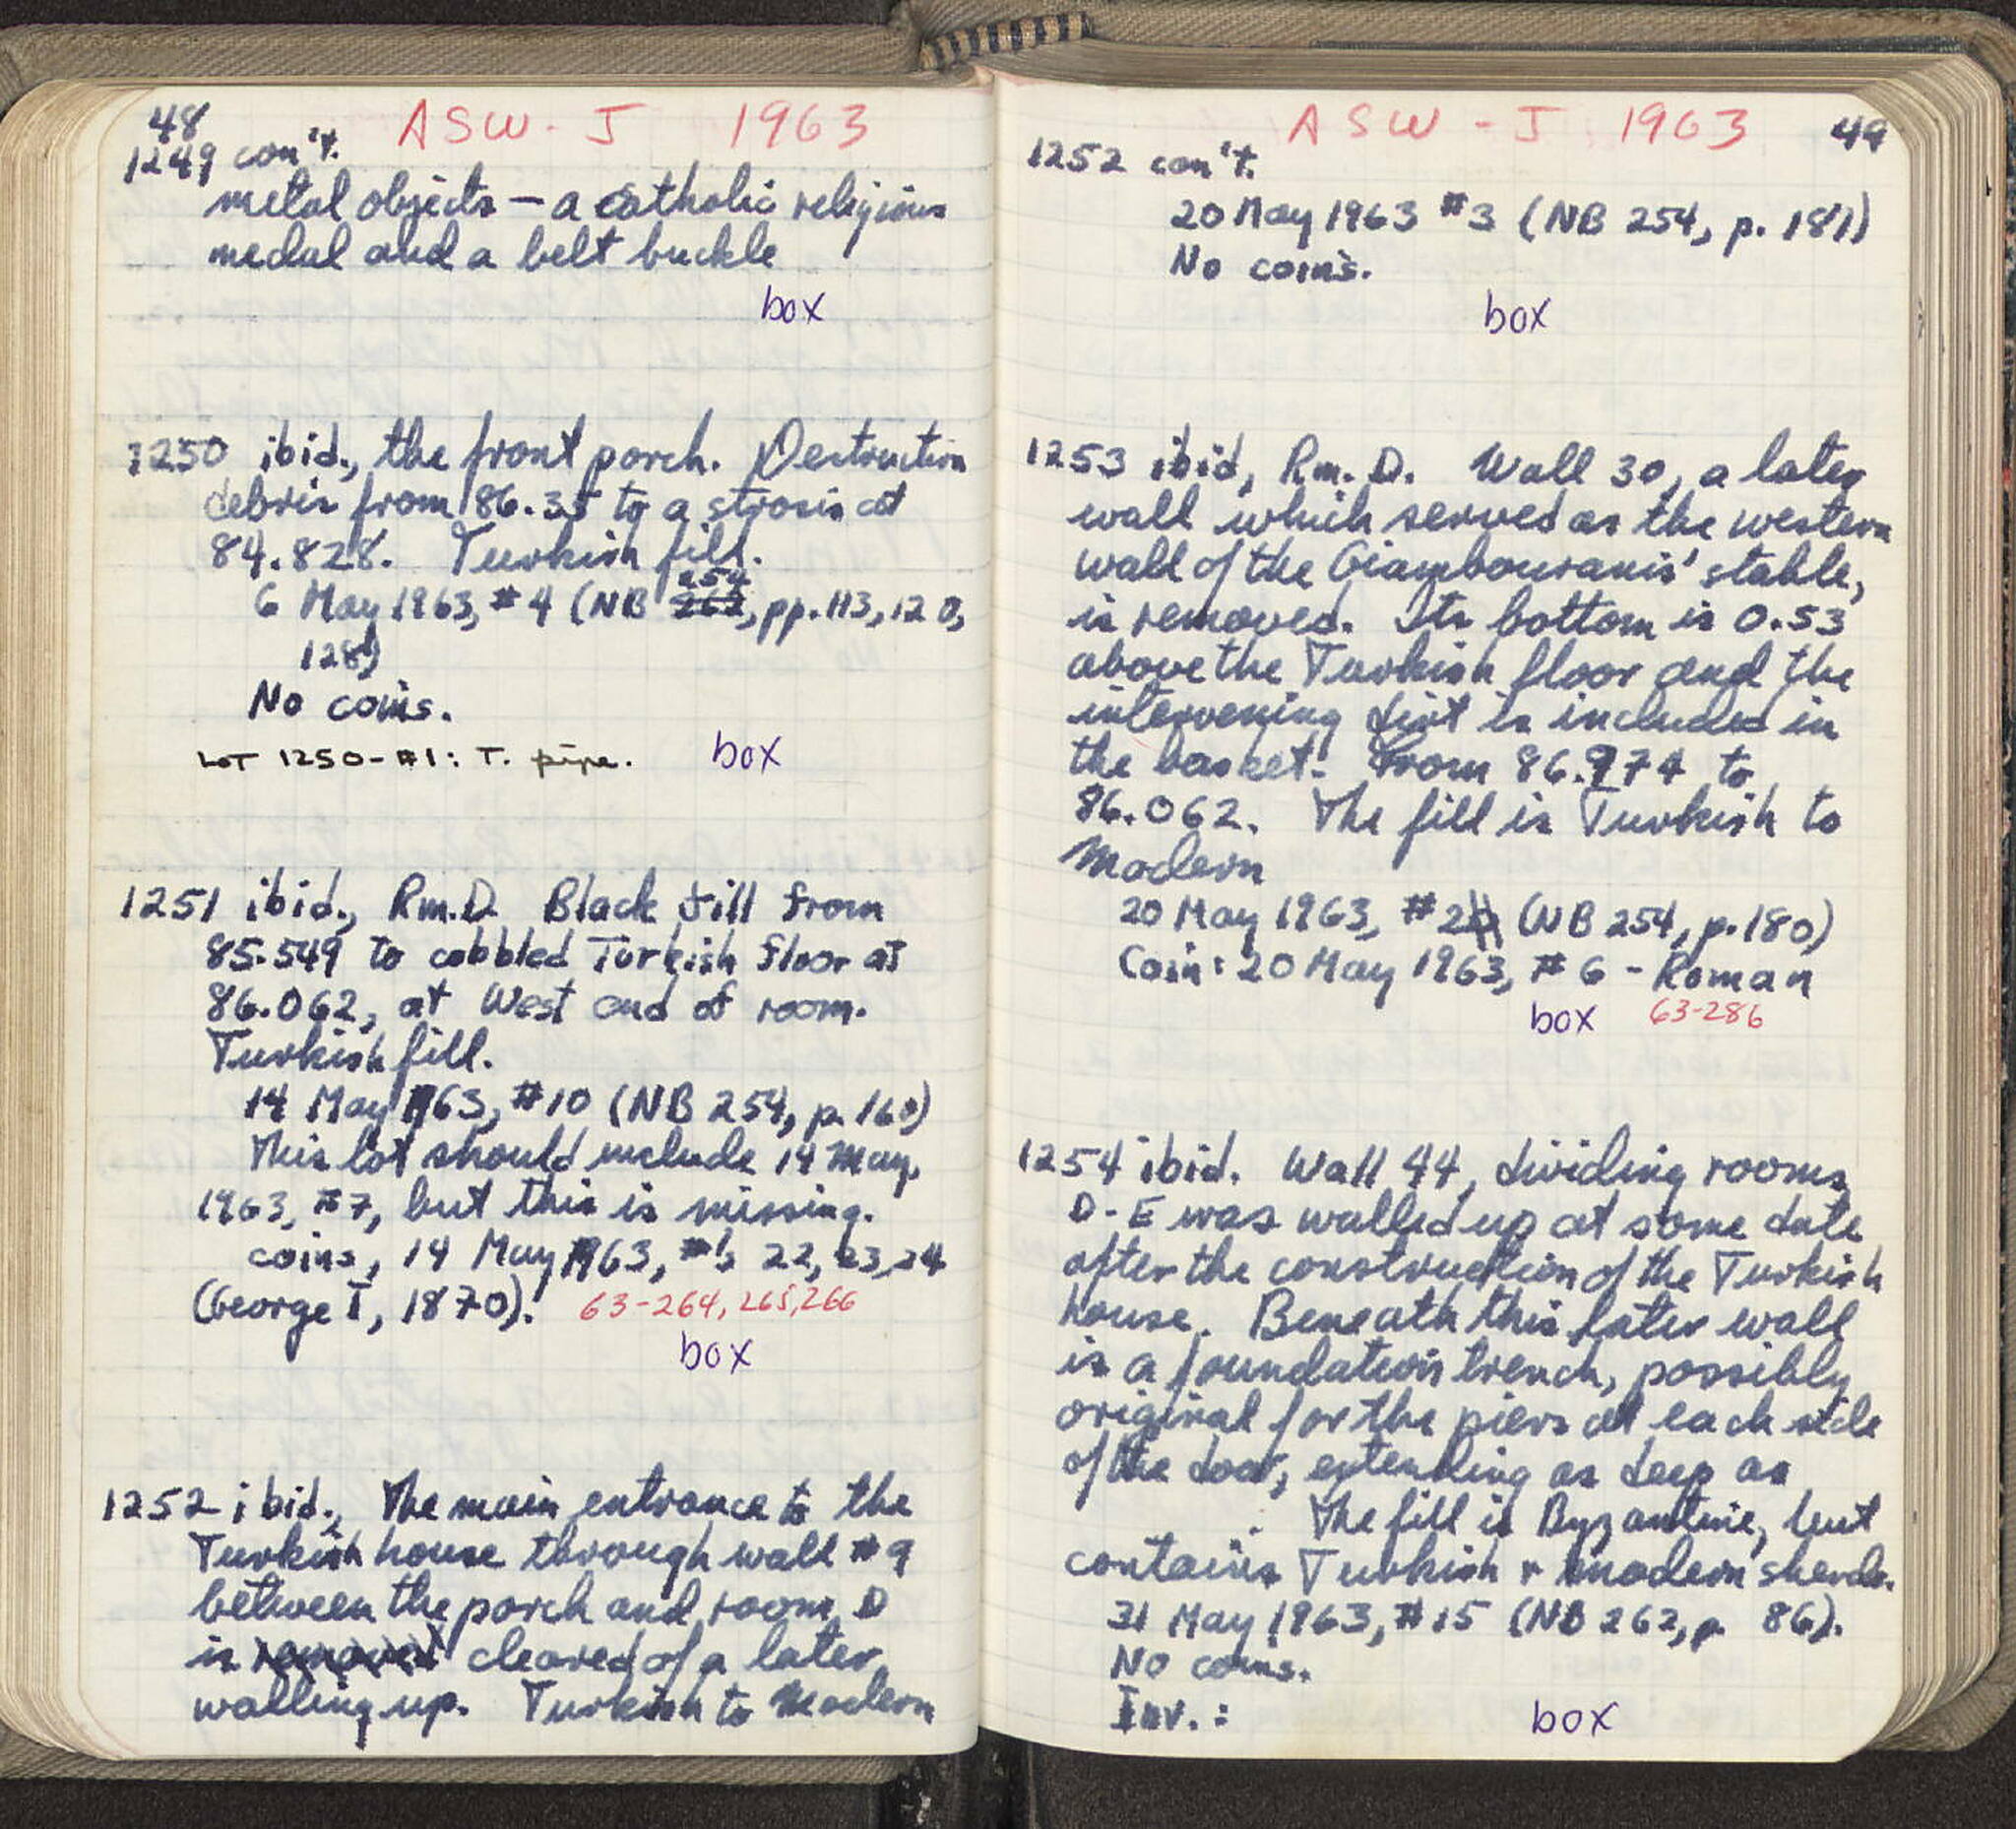 48
ASW - J 1963
1249 con't.
metal objects — a catholic religious
medal and a belt buckle
box
1250 ibid., the front porch. Destruction
debris from 86.35 to a strosis at
84.828. Turkish fill.
254
6 May 1963, #4 (NB 262, pp. 113, 120,
128)
No coins.
LOT 1250-#1: T. pipe.
box
1251 ibid., Rm. D Black fill from
85.549 to cobbled Turkish floor at
86.062, at West end of room.
Turkish fill.
14 May 1963, #10 (NB 254, p. 160)
This lot should include 14 May,
1963, #7, but this is missing.
coins, 14 May 1963, #'s 22, 23, 24
(George I, 1870). 63-264, 265, 266
box
1252 ibid., The main entrance to the
Turkish house through wall #9
between the porch and room D
is removed cleared of a later
walling up. Turkish to Modern
ASW - J 1963
49
1252 con't.
20 May 1963 #3 (NB 254, p. 181)
No coins.
box
1253 ibid, Rm. D. Wall 30, a later
wall which served as the western
wall of the Giambouranis' stable,
is removed. Its bottom is 0.53
above the Turkish floor and the
intervening dirt is included in
the basket. From 86.974 to
86.062. The fill is Turkish to
Modern
20 May 1963, #2 (NB 254, p. 180)
Coin: 20 May 1963, #6 - Roman
box 63-286
1254 ibid. Wall 44, dividing rooms
D-E was walled up at some date
after the construction of the Turkish
house. Beneath this later wall
is a foundation trench, possibly
original for the piers at each side
of the door, extending as deep as
. The fill is Byzantine, but
contains Turkish + modern sherds.
31 May 1963, #15 (NB 262, p 86).
No coins.
Inv. :
box